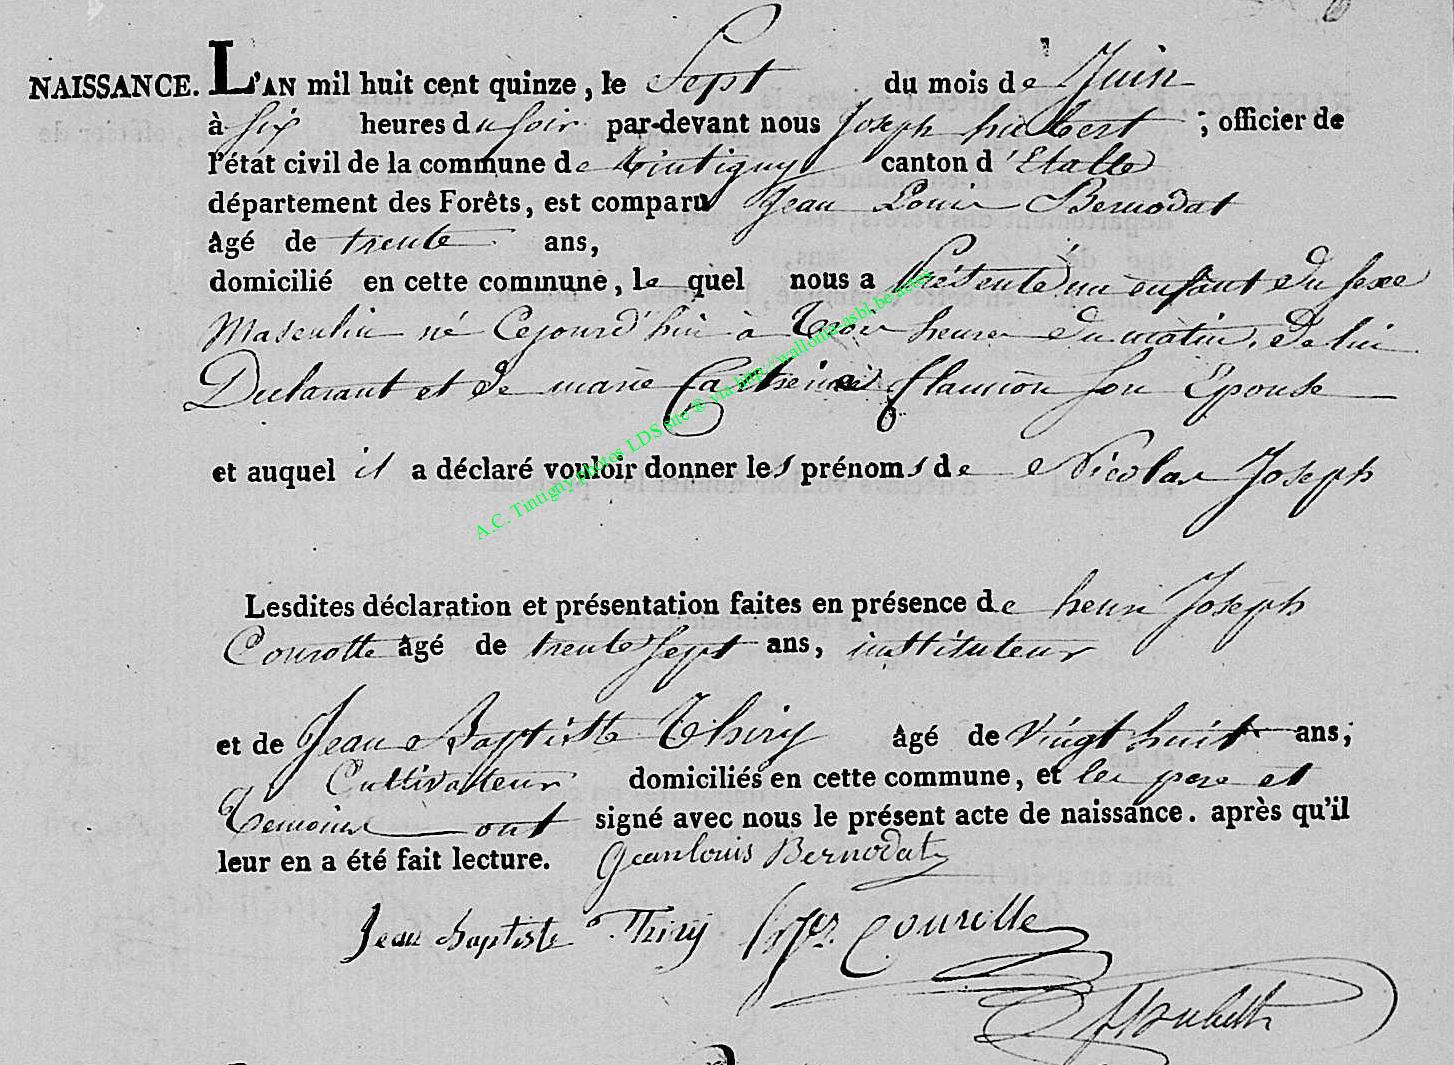 NAISSANCE. L'AN mil huit cent quinze, le Sept du mois de Juin
à six heures du soir par-devant nous Joseph hubert ; officier de
l'état civil de la commune de Tintigny canton d'Etalle
département des Forêts, est comparu Jean Louis Bernodat
âgé de trente ans,
domicilié en cette commune, le quel nous a Présenté un enfant du sexe
Masculin né Cejourd'hui à Trois heures du matin, de lui
Declarant et de marie Catherine flamion son Epouse
et auquel il a déclaré vouloir donner les prénoms de Nicolas Joseph
Lesdites déclaration et présentation faites en présence de henri Joseph
Courotte âgé de trente Sept ans, instituteur
et de Jean Baptiste Thiry âgé de Vingt huit ans;
Cultivateur domiciliés en cette commune, et les pere et
Temoins ont signé avec nous le présent acte de naissance. après qu'il
leur en a été fait lecture. Jean louis Bernodat
Jean Baptiste Thiry Courotte
Hubert
A.C. Tintigny photos LDS site ® via http://wallonia.asbl.be.actes